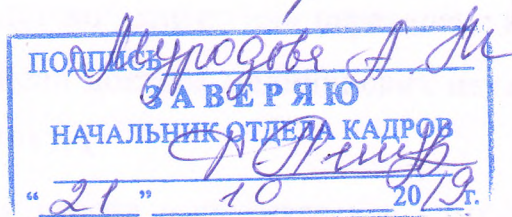 ПОДПИСЬ Муродова А.
ЗАВЕРЯЮ
НАЧАЛЬНИК ОТДЕЛА КАДРОВ
“ 21 ” 10 2019 г.